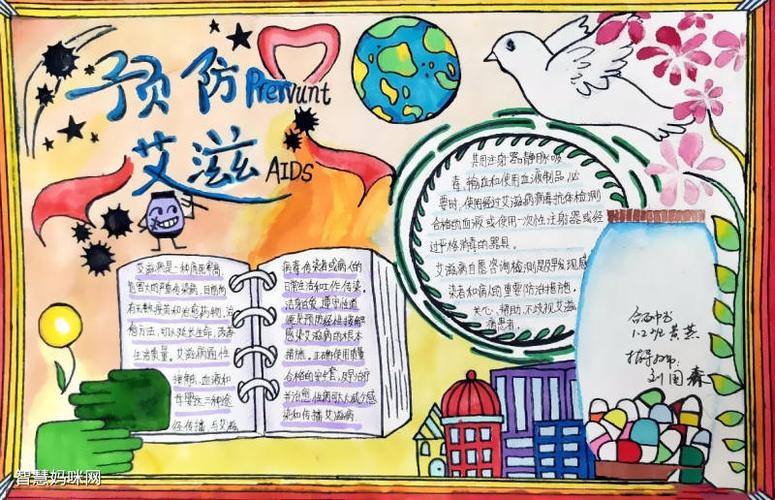 预防
Prevunt
艾滋
AIDS
艾滋病是一种病死率高,
危害大的严重传染病,目前尚
有无数疫苗和治愈药物,治
疗方法,可以延长生命,改善
生活质量。艾滋病通过性
接触、血液和
母婴这三种途
径传播 与艾滋
病毒传染者或病人的
日常生活和工作传染。
洁身自爱、遵守
是预防经性接触
感染艾滋病的根本
措施。正确使用质量
合格的安全套,及早治疗
并治愈性病可大大减少感
染和传播艾滋病
共用注射器静脉吸
毒,输血和使用血液制品,必
要时,使用经过艾滋病病毒抗体检测
合格的血液或使用一次性注射器或经
过严格消毒的器具
艾滋病自愿咨询检测是及早发现感
染者和病人的重要防治措施。
关心、帮助、不歧视艾滋
病患者。
1.2班 黄燕
指导师:
刘国森
智慧妈咪网